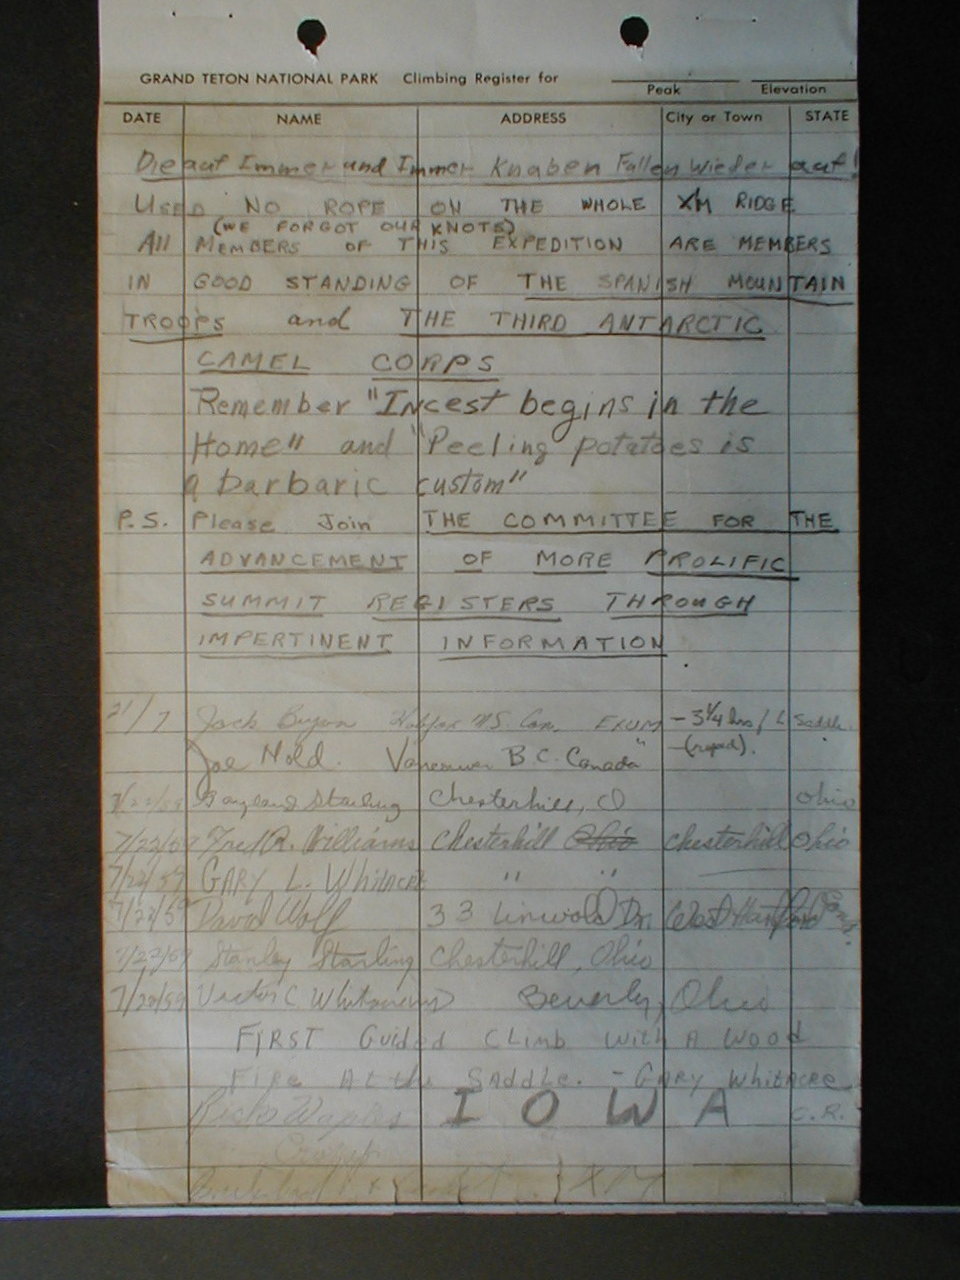 GRAND TETON NATIONAL PARK Climbing Register for
Peak Elevation
DATE NAME ADDRESS City or Town STATE
Die auf Immer und Immer Knaben Fallen Wieder auf!
USED NO ROPE ON THE WHOLE XM RIDGE
(WE FORGOT OUR KNOTS)
All MEMBERS OF THIS EXPEDITION ARE MEMBERS
IN GOOD STANDING OF THE SPANISH MOUNTAIN
TROOPS and THE THIRD ANTARCTIC
CAMEL CORPS
Remember "Incest begins in the
Home" and "Peeling potatoes is
a barbaric custom"
P.S. Please Join THE COMMITTEE FOR THE
ADVANCEMENT OF MORE PROLIFIC
SUMMIT REGISTERS THROUGH
IMPERTINENT INFORMATION.
21/7 Jack Halifax N.S. Can. EXUM - 3¼ hrs / L Saddle.
Joe Nold. Vancouver B.C. Canada " (roped).
7/22/59 Starling Chesterhill, O Ohio
7/22/59 Fred R. Williams Chesterhill Ohio Chesterhill Ohio
7/22/59 GARY L. Whitacre " "
7/22/59 David Wolf 33 Linwold Dr. West Hartford Conn.
7/22/59 Stanley Starling Chesterhill, Ohio
7/22/59 Victor C. Beverly, Ohio
FIRST Guided Climb With A Wood
Fire At the Saddle. - GARY Whitacre
IOWA C.R.